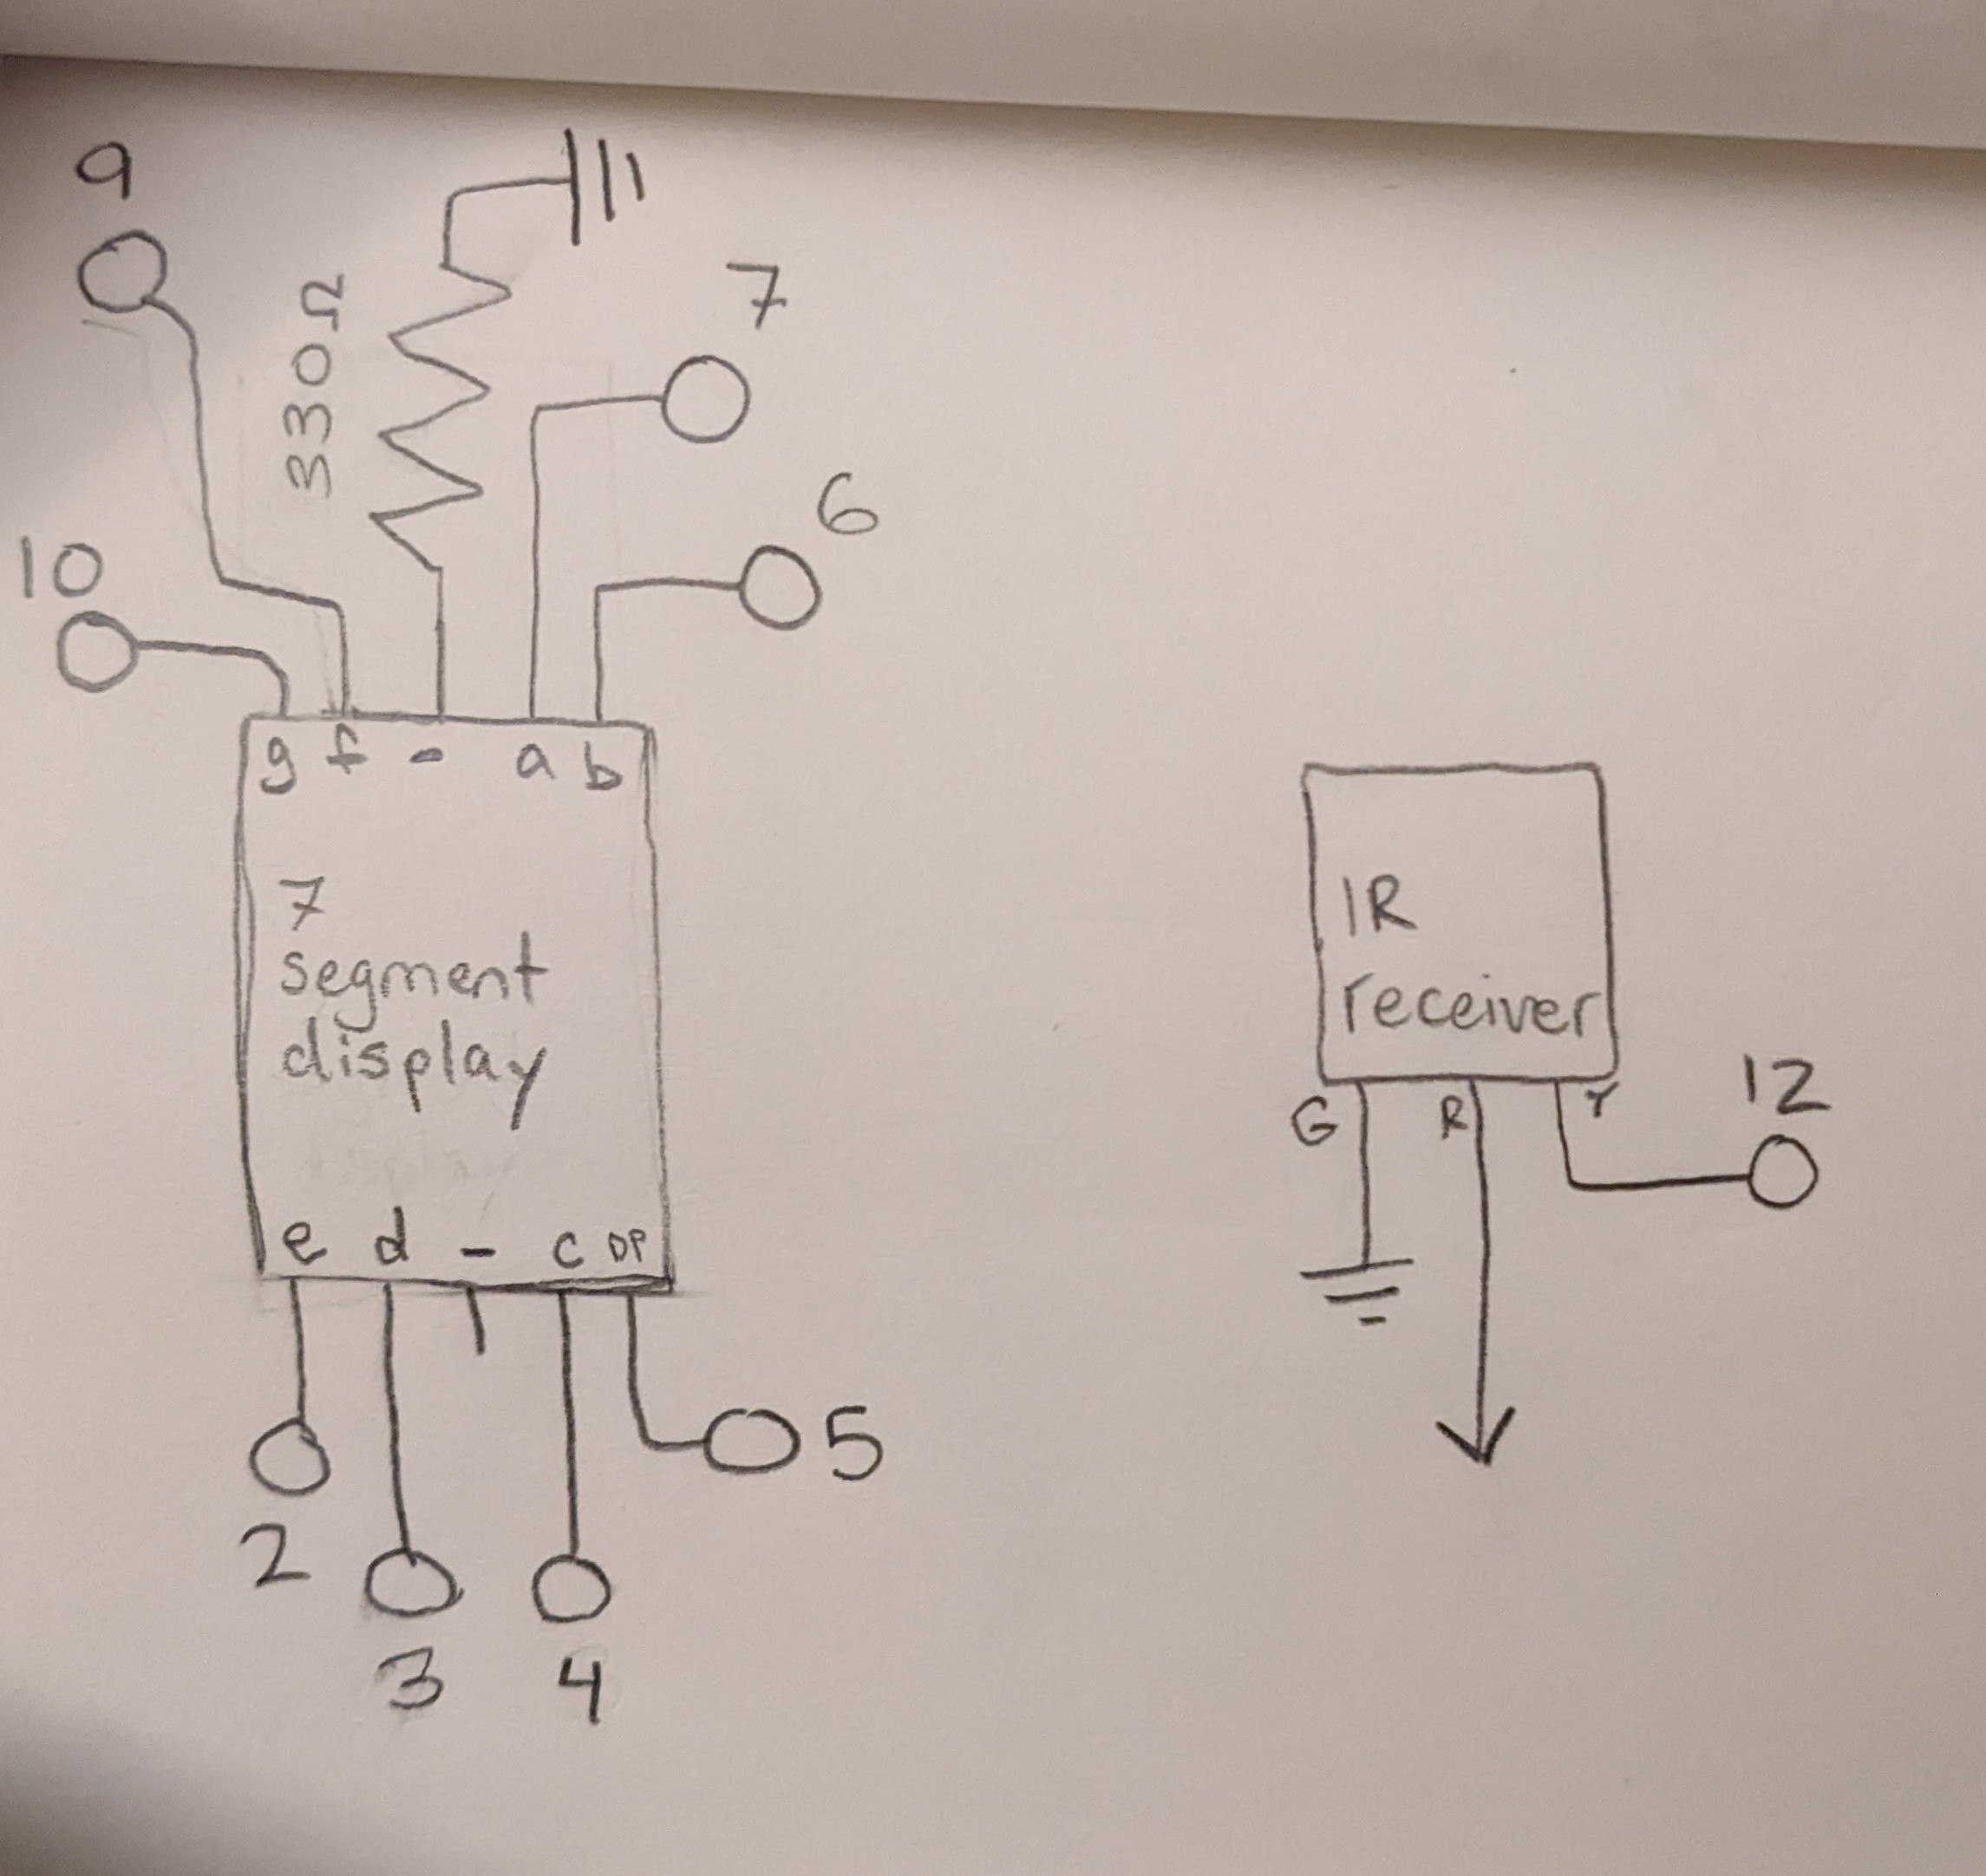 9
330Ω
7
6
10
g f - a b
7
segment
display
e d - c DP
5
2
3 4
IR
receiver
G R Y
12